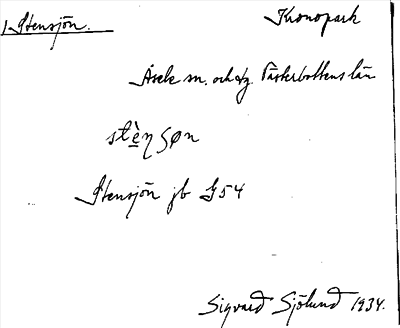 1 Stensjön. Kronopark
Åsele sn. och tg. Västerbottens län
stè̱nʃøn
Stensjön jb G54
Sigvard Sjölund 1934.